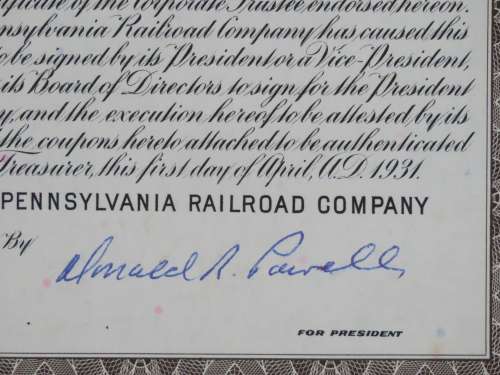 ficate of the Corporate Trustee endorsed hereon.
nnsylvania Railroad Company has caused this
to be signed by its President or a Vice-President,
its Board of Directors to sign for the President
y, and the execution hereof to be attested by its
the coupons hereto attached to be authenticated
Treasurer, this first day of April, A.D. 1931.
PENNSYLVANIA RAILROAD COMPANY
By
Donald R. Powell
FOR PRESIDENT